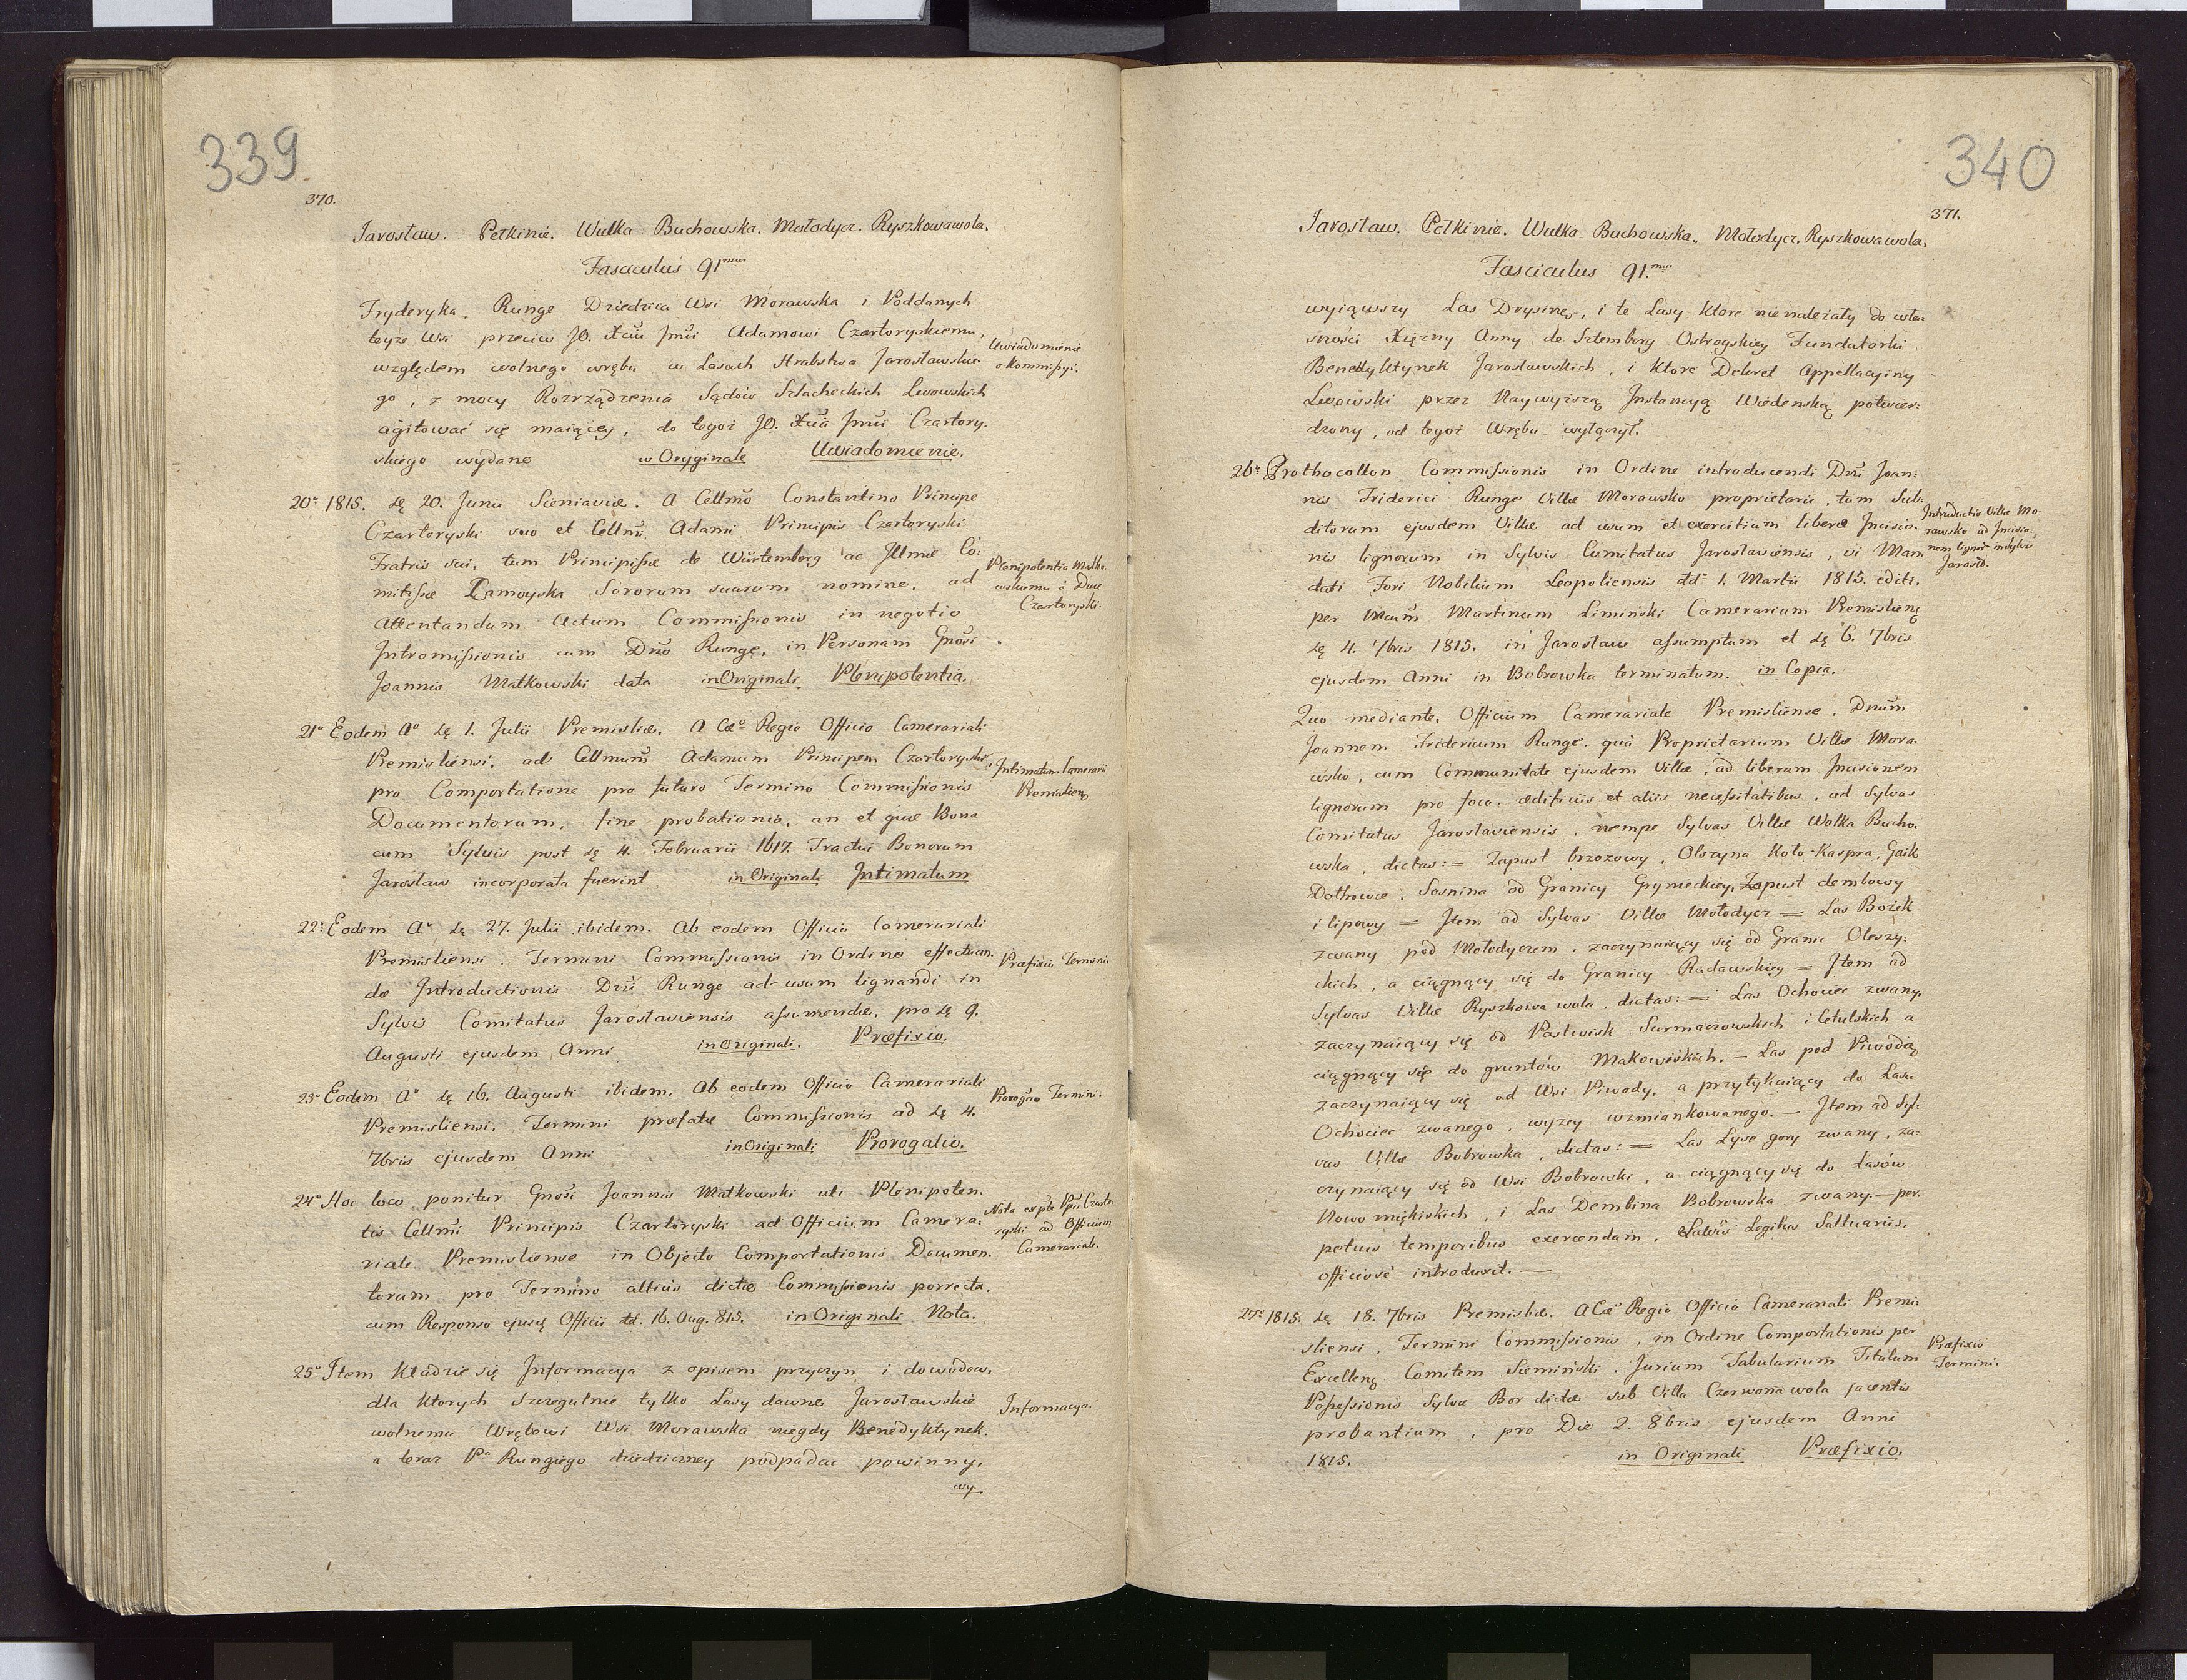 339
370.
Jarosław. Pełkinie. Wulka Buchowska. Mołodycz. Ryszkowawola.
Fasciculus 91mus
Fryderyka Runge Dziedzica Wsi Morawska i Poddanych
teyże Wsi przeciw JO. Xciu Jmci Adamowi Czartoryskiemu,
względem wolnego wrębu w Lasach Hrabstwa Jarosławskie-
go, z mocy Rozrządzenia Sądów Szlacheckich Lwowskich
agitować się maiącey, do tegoż JO. Xcia Jmci Czartory-
skiego wydane w Oryginale Uwiadomienie.
Uwiadomienie
o Kommissyi.
20o 1815. dę 20. Junii Sieniaviæ. A Cellmo Constantino Principe
Czartoryski suo et Cellmi Adami Principis Czartoryski
Fratris sui, tum Principissæ de Würtemberg ac Illmæ Co-
mitissæ Zamoyska Sororum suarum nomine, ad
attentandum Actum Commissionis in negotio
Intromissionis cum Dno Runge, in Personam Gnosi
Joannis Matkowski data in Originali Plenipotentia.
Plenipotentia Matko-
wskiemu a Duce
Czartoryski.
21o Eodem Ao dę 1. Julii Premisliæ. A Cæo Regio Officio Camerariali
Premisliensi, ad Cellmum Adamum Principem Czartoryski,
pro Comportatione pro futuro Termino Commissionis
Documentorum, fine probationis, an et quæ Bona
cum Sylvis post dę 4. Februarii 1617. Tractui Bonorum
Jarosław incorporata fuerint in Originali Intimatum
Intimatum Camerarii
Premislieng
22o Eodem Ao dę 27. Julii ibidem. Ab eodem Officio Camerariali
Premisliensi. Termini Commissionis in Ordine effectuan-
dæ Introductionis Dni Runge ad usum lignandi in
Sylvis Comitatus Jaroslaviensis assumendæ, pro dę 9.
Augusti ejusdem Anni in Originali. Præfixio.
Præfixio Termini.
23o Eodem Ao dę 16. Augusti ibidem. Ab eodem Officio Camerariali
Premisliensi. Termini præfatæ Commissionis ad dę 4.
7bris ejusdem Anni in Originali Prorogatio.
Prorogão Termini.
24o Hoc loco ponitur Gnosi Joannis Matkowski uti Plenipoten-
tis Cellmi Principis Czartoryski ad Officium Camera-
riale Premisliense in Objecto Comportationis Documen-
torum pro Termino altius dictæ Commissionis porrecta,
cum Responso ejusdę Officii dd. 16. Aug. 815. in Originali Nota.
Nota ex pte Ppis Czarto-
ryski ad Officium
Camerariale.
25o Item kładzie się Informacya z opisem przyczyn i dowodow,
dla ktorych szczegulnie tylko Lasy dawne Jarosławskie
wolnemu Wrębowi Wsi Morawska niegdy Benedyktynek,
a teraz Pa Rungiego dziedziczney podpadac powinny,
wy-
Informacya.
340
371.
Jarosław. Pełkinie. Wulka Buchowska. Mołodycz. Ryszkowawola.
Fasciculus 91.mus
wyiąwszy Las Drysinę, i te Lasy ktore nienależały do wła-
sności Xiężny Anny de Sztemberg Ostrogskiey Fundatorki
Benedyktynek Jarosławskich, i ktore Dekret Appellacyiny
Lwowski przez Naywyższą Instancyą Wiedenską potwier-
dzony, od tegoż Wrębu wyłączył.
26o Prothocollon Commissionis in Ordine introducendi Dni Joan-
nis Friderici Runge Villæ Morawsko proprietarii, tum Sub-
ditorum ejusdem Villæ ad usum et exercitium liberæ Incisio-
nis lignorum in Sylvis Comitatus Jaroslaviensis, vi Man-
dati Fori Nobilium Leopoliensis ddo 1. Martii 1815. editi,
per Mcum Martinum Limiński Camerarium Premislieng
dę 4. 7bris 1815. in Jarosław assumptum et dę 6. 7bris
ejusdem Anni in Bobrowka terminatum. in Copia.
Introductio Villæ Mo-
rawsko ad Incisio-
nem lignor. in Sylvis
Jarosło.
Quo mediante, Officium Camerariale Premisliense, Dnum
Joannem Fridericum Runge, quâ Proprietarium Villæ Mora-
wsko, cum Communitate ejusdem Villæ, ad liberam Incisionem
lignorum pro foco, ædificiis et aliis necessitatibus, ad Sylvas
Comitatus Jaroslaviensis, nempe Sylvas Villæ Wolka Bucho-
wska, dictas: = Zapust brzozowy, Olszyna Koło Kaspra, Gaik
Dothowce, Sosnina od Granicy Grynieckiey, Zapust dembowy
i lipowy = Item ad Sylvas Villæ Mołodycz = Las Bożek
zwany pod Mołodyczem, zaczynaiący się od Granic Oleszy-
ckich, a ciągnący się do Granicy Radawskiey = Item ad
Sylvas Villæ Ryszkowa wola, dictas: = Las Ochociec zwany,
zaczynaiący się od Pastwisk Surmaczowskich i Cetulskich a
ciągnący się do gruntów Makowiskich. — Las pod Piwodą
zaczynaiący się od Wsi Piwody, a przytykaiący do Lasu
Ochociec zwanego, wyzey wzmiankowanego. — Item ad Syl-
vas Villæ Bobrowka, dictas: = Las Lyse gory zwany, za-
czynaiący się od Wsi Bobrowki, a ciągnący się do Lasów
Nowo miękiskich, i Las Dembina Bobrowska zwany. — per-
petuis temporibus exercendam, Salvis Legibus Saltuariis,
officiosè introduxit. —
27o 1815. dę 18. 7bris Premisliæ. A Cæo Regio Officio Camerariali Premi-
sliensi, Termini Commissionis, in Ordine Comportationis per
Excelleng Comitem Siemiński, Jurium Tabularium Titulum
Possessionis Sylvæ Bor dictæ sub Villa Czerwona wola jacentis
probantium, pro Die 2. 8bris ejusdem Anni
1815. in Originali Præfixio.
Præfixio
Termini.